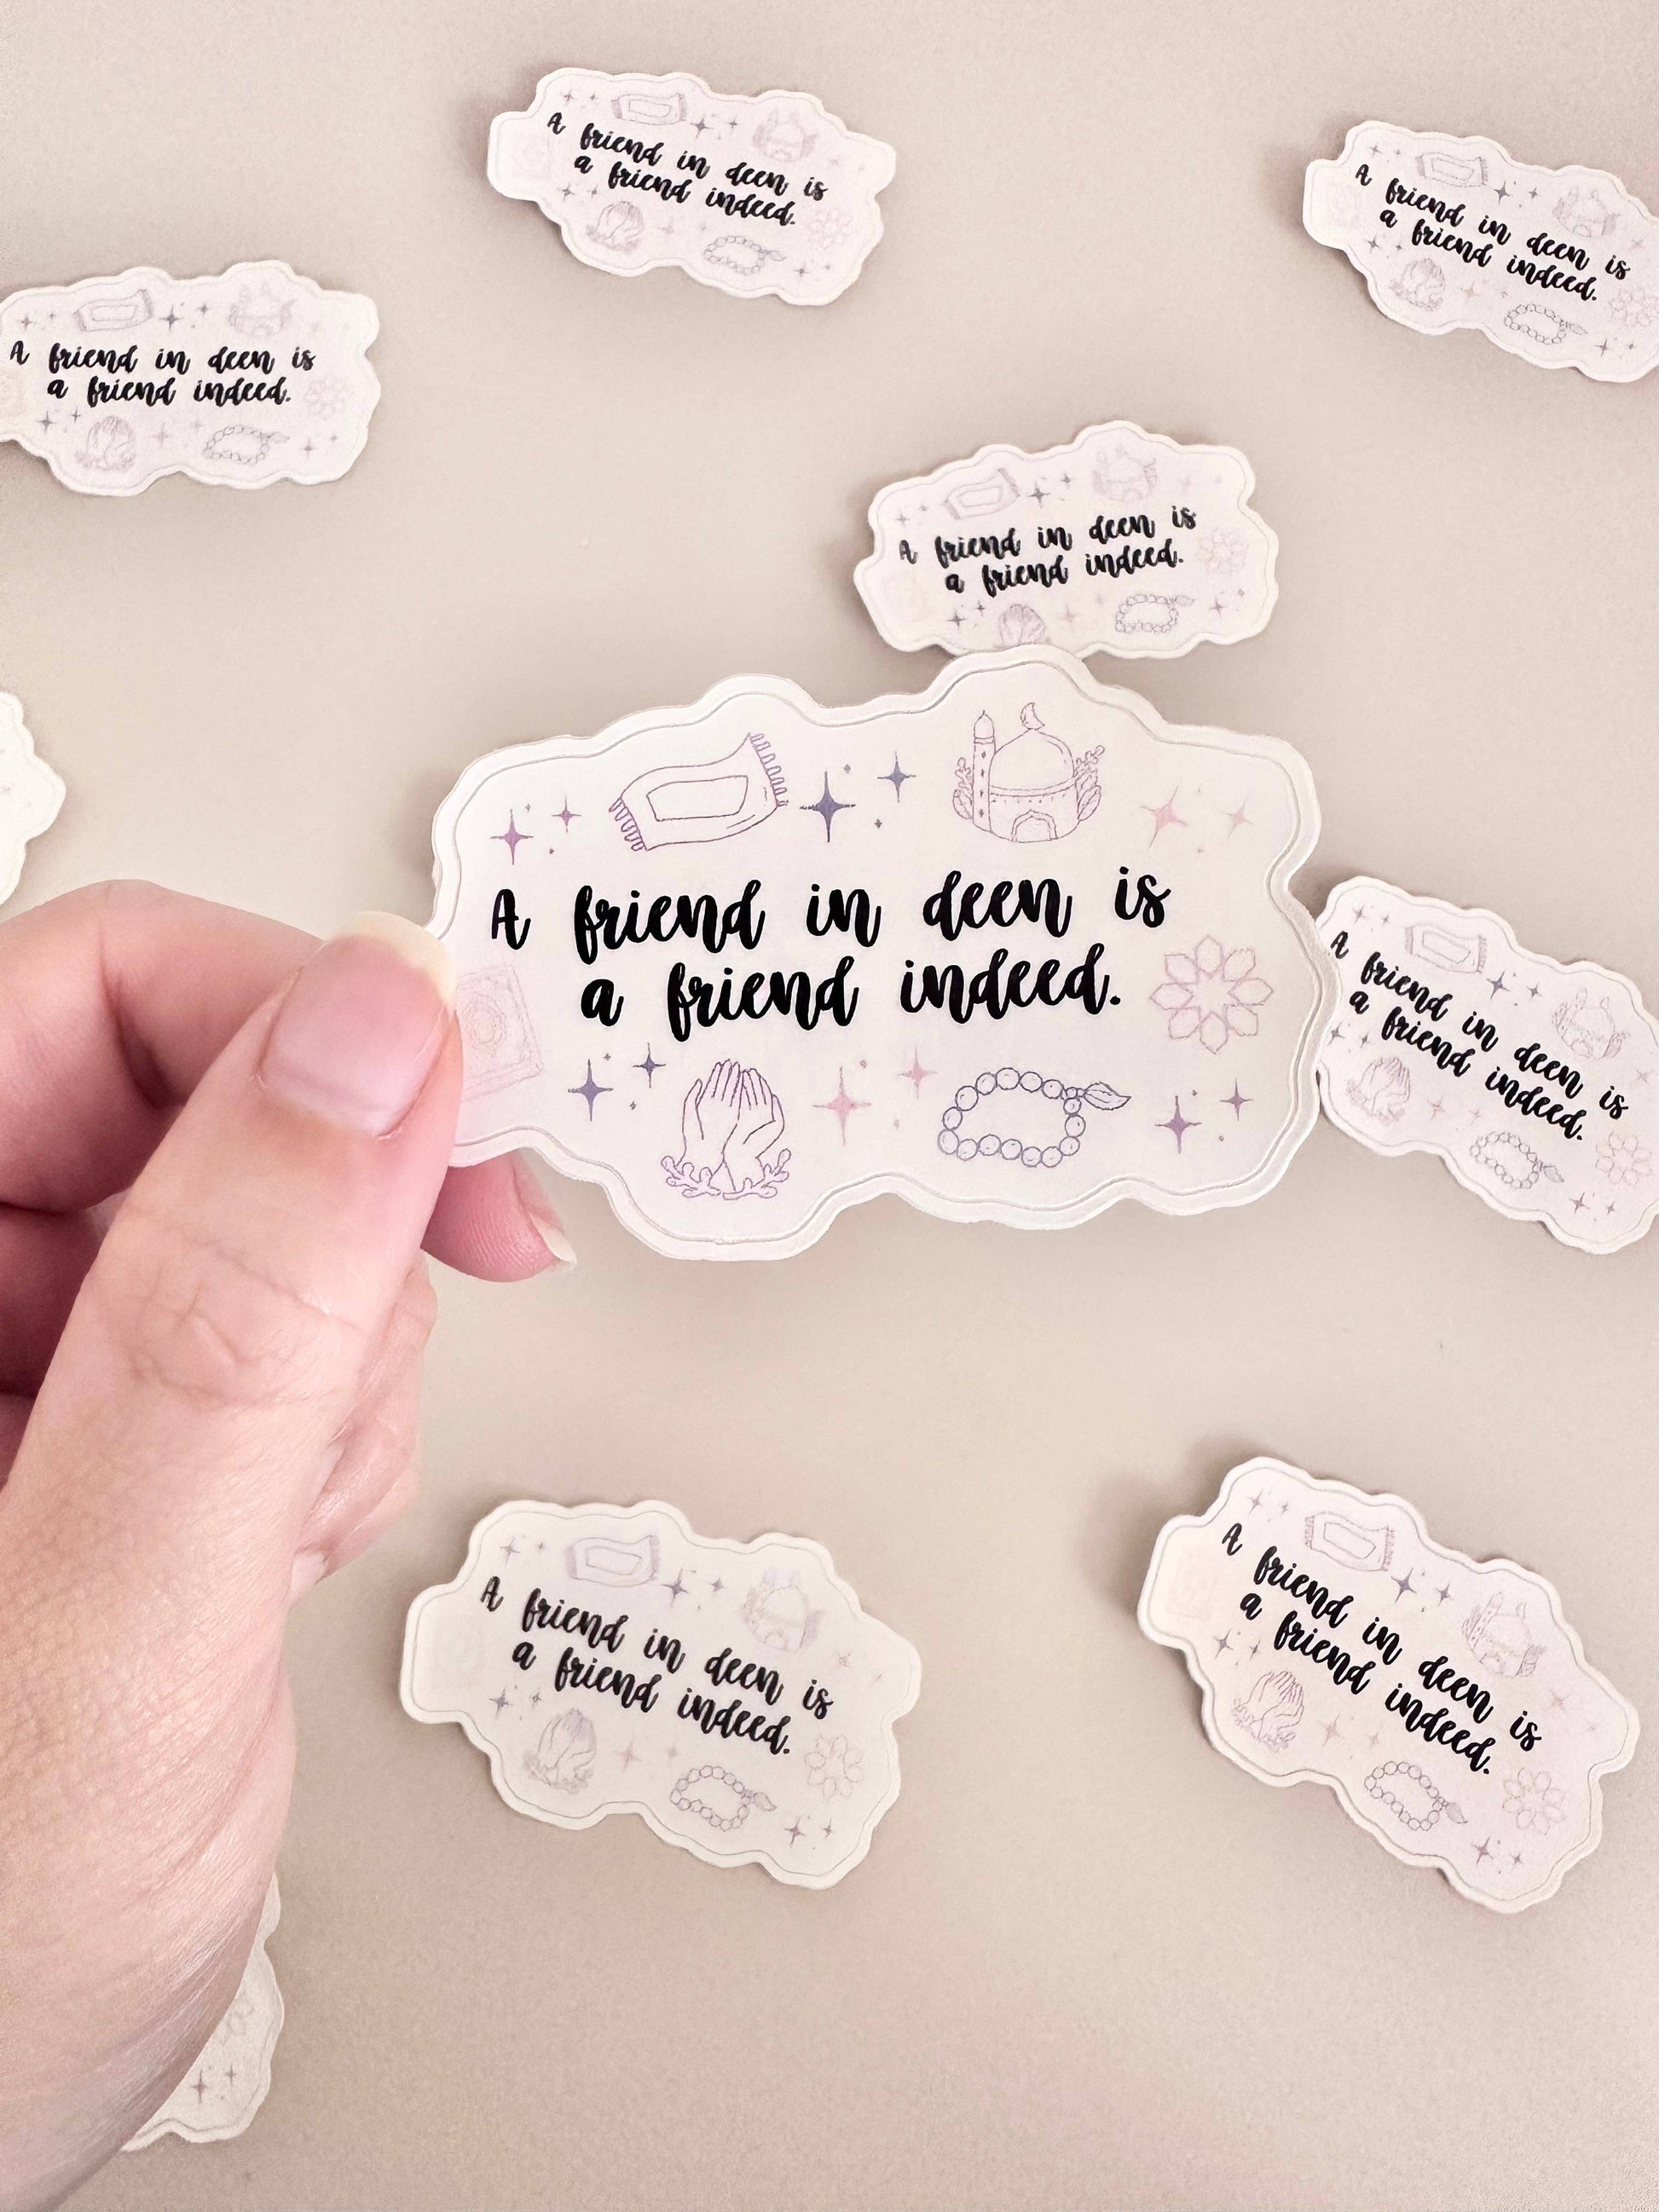 A friend in deen is
a friend indeed.
A friend in deen is
a friend indeed.
A friend in deen is
a friend indeed.
A friend in deen is
a friend indeed.
A friend in deen is
a friend indeed.
A friend in deen is
a friend indeed.
A friend in deen is
a friend indeed.
A friend in deen is
a friend indeed.